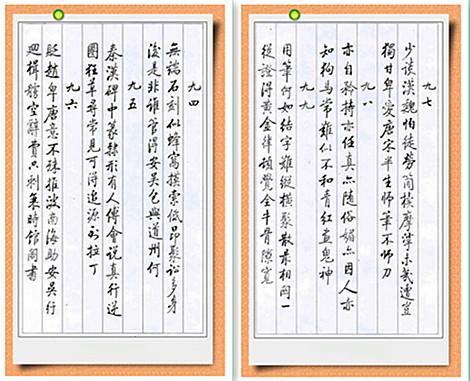 九四
無端石刻似蜂窩摸索低昂聚訟多身
後是非誰管得安吴包與道州何
九五
秦漢碑中篆隸形有人傅會說真行逆
圈狂草尋常見可得追源到拉丁
九六
貶趙卑唐意不殊推波南海助安吴
迴空辭費只時館閣書
九七
少談漢魏怕徒勞簡牘摩挲未幾遭豈
獨甘卑愛唐宋半生師筆不師刀
九八
亦自矜持亦任真亦隨俗媚亦因人亦
知狗馬常難似不和青紅畫鬼神
九九
用筆何如結字難縱橫聚散最相關一
從證得黃金律頓覺全牛骨隙寬